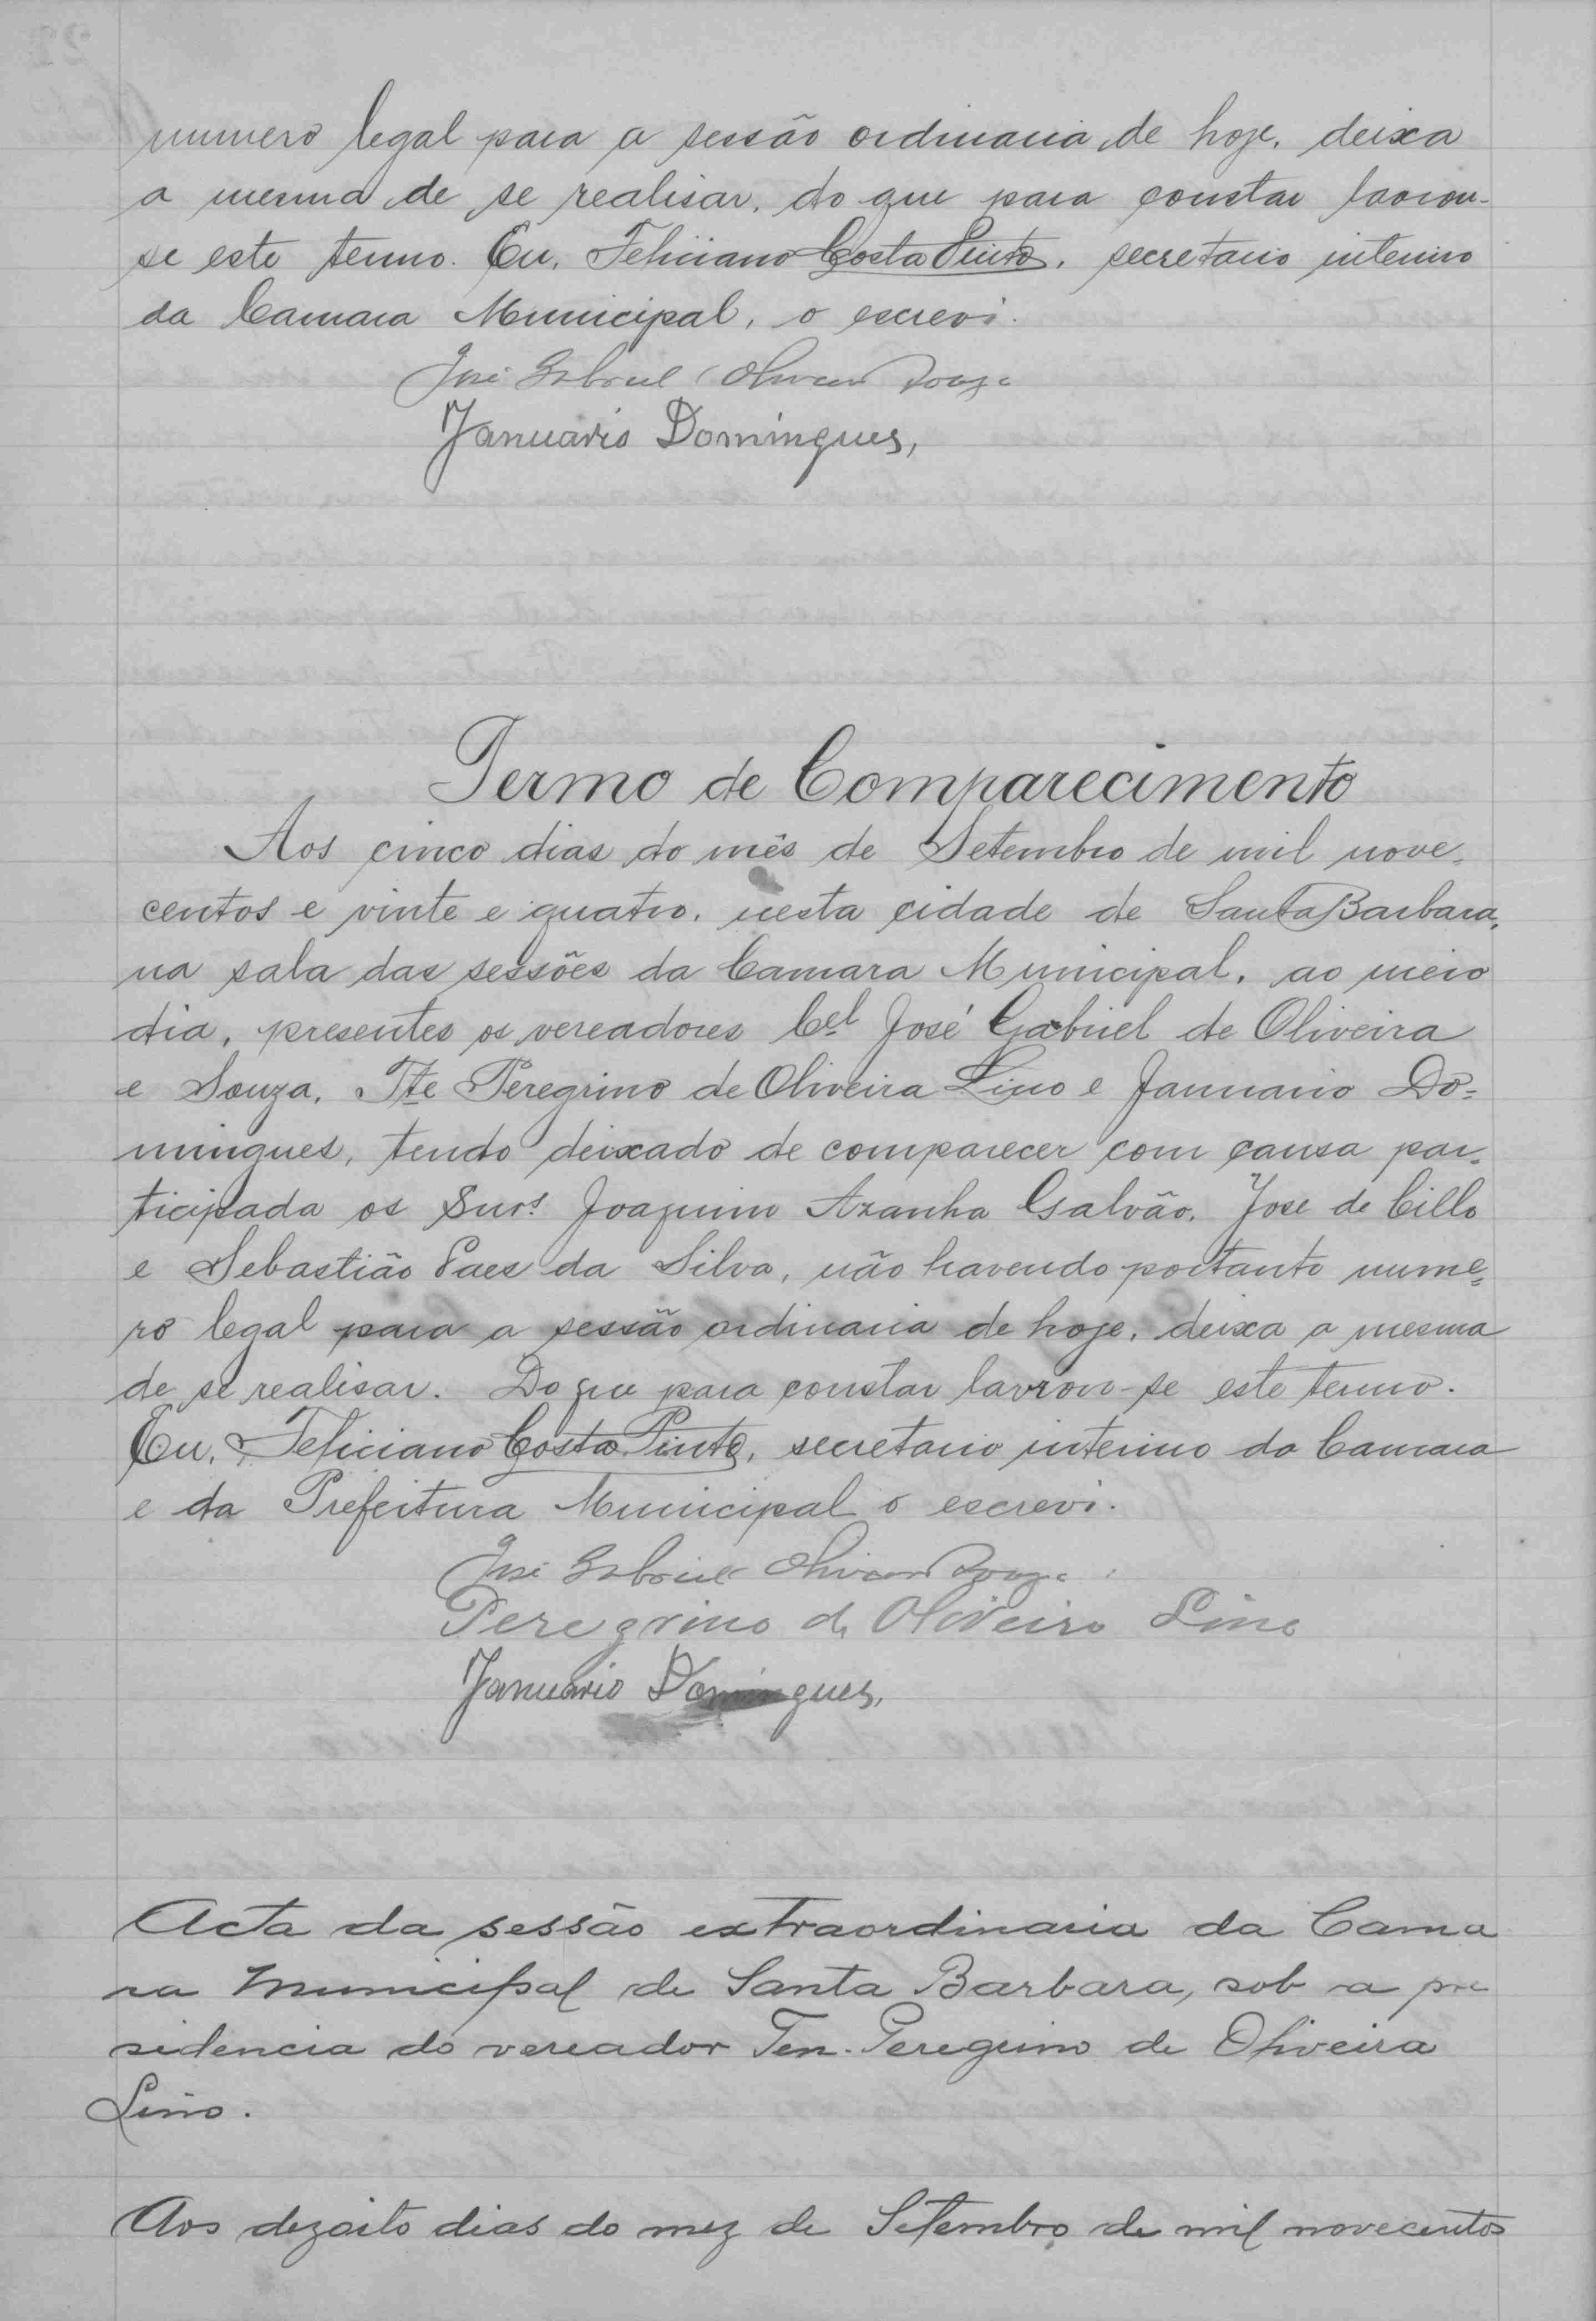 numero legal para a sessão ordinaria de hoje, deixa
a mesma de se realisar, do que para constar lavrou-
se este termo. Eu, Feliciano Costa Pinto, secretario interino
da Camara Municipal, o escrevi.
José Gabriel Oliveira Souza
Januario Domingues,
Termo de Comparecimento
Aos cinco dias do mês de Setembro de mil nove-
centos e vinte e quatro, nesta cidade de Santa Barbara,
na sala das sessões da Camara Municipal, ao meio
dia, presentes os vereadores Cel José Gabriel de Oliveira
e Souza, Tte Peregrino de Oliveira Lino e Januario Do=
mingues, tendo deixado de comparecer com causa par-
ticipada os Snrs. Joaquim Azanha Galvão, Jose de Cillo
e Sebastião Paes da Silva, não havendo portanto nume=
ro legal para a sessão ordinaria de hoje, deixa a mesma
de se realisar. Do que para constar lavrou-se este termo.
Eu, Feliciano Costa Pinto, secretario interino da Camara
e da Prefeitura Municipal o escrevi.
José Gabriel Oliveira Souza
Peregrino de Oliveira Lino
Januario Domingues,
Acta da sessão extraordinaria da Cama
ra Municipal de Santa Barbara, sob a pre
sidencia do vereador Ten. Peregrino de Oliveira
Lino.
Aos dezoito dias do mez de Setembro de mil novecentos